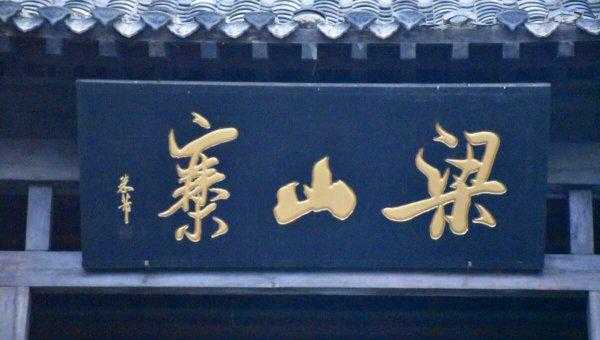 梁山寨